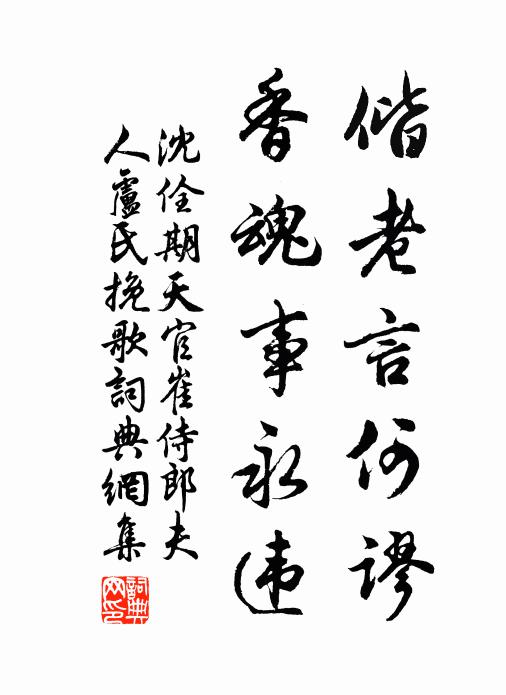 偕老言何謬
香魂事永违
沈佺期天官崔侍郎夫
人盧氏挽歌詞典網集
詞典網印